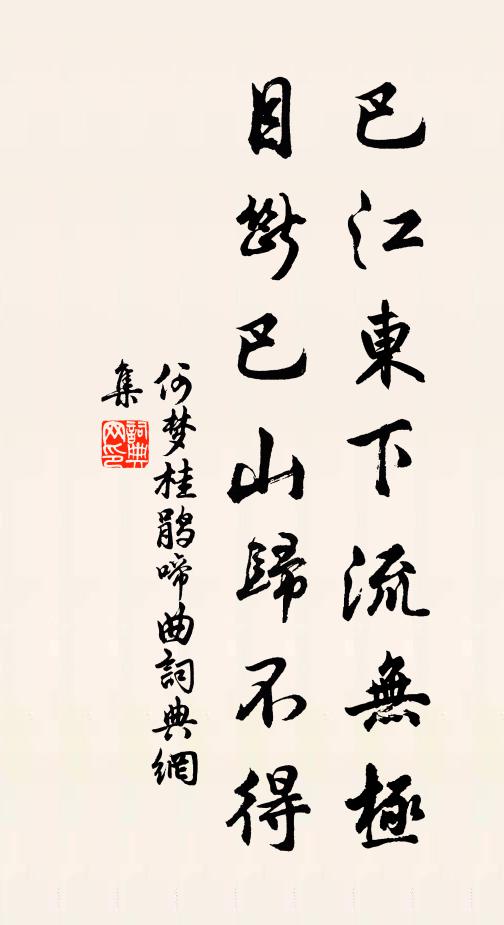 巴江東下流無極
目斷巴山歸不得
何梦桂鹃啼曲詞典網
集
詞典网印